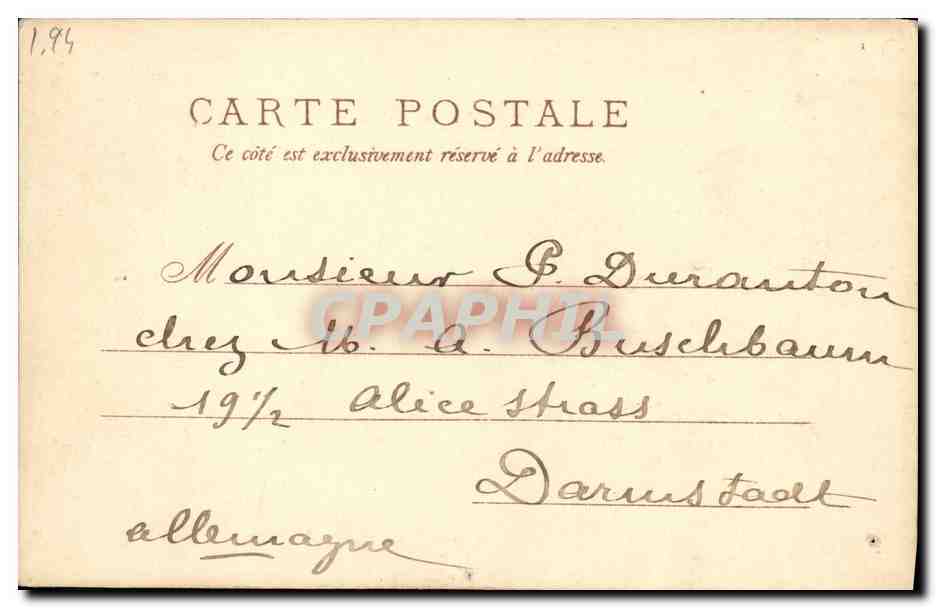 1,94
CARTE POSTALE
Ce côté est exclusivement réservé à l'adresse.
Monsieur P. Duranton
CPAPHIL
chez M. A. Buschbaum
19 1/2 Alice Strass
Darmstadt
allemagne